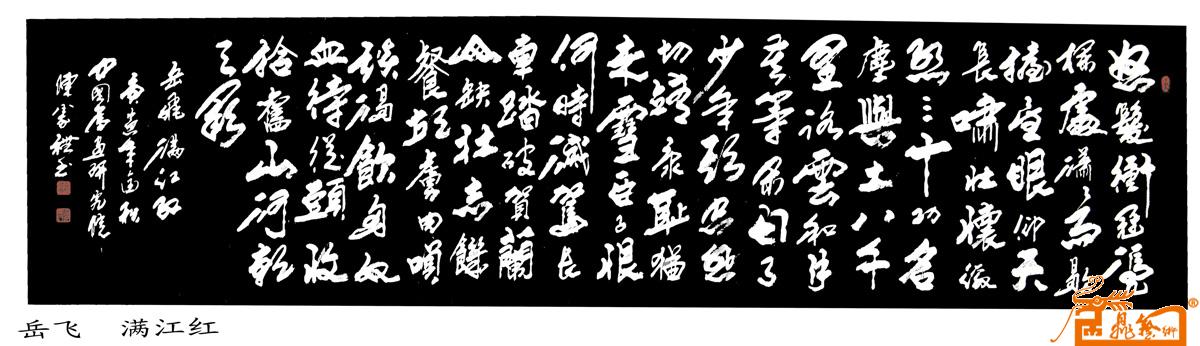 怒髮衝冠憑
欄處瀟瀟雨歇
擡望眼仰天
長嘯壯懷激
烈三十功名
塵與土八千
里路雲和月
莫等閒白了
少年頭空悲
切靖康恥猶
未雪臣子恨
何時滅駕長
車踏破賀蘭
山缺壯志饑
餐胡虜肉笑
談渴飲匈奴
血待從頭收
拾舊山河朝
天闕
岳飛滿江紅
岳飞 满江红